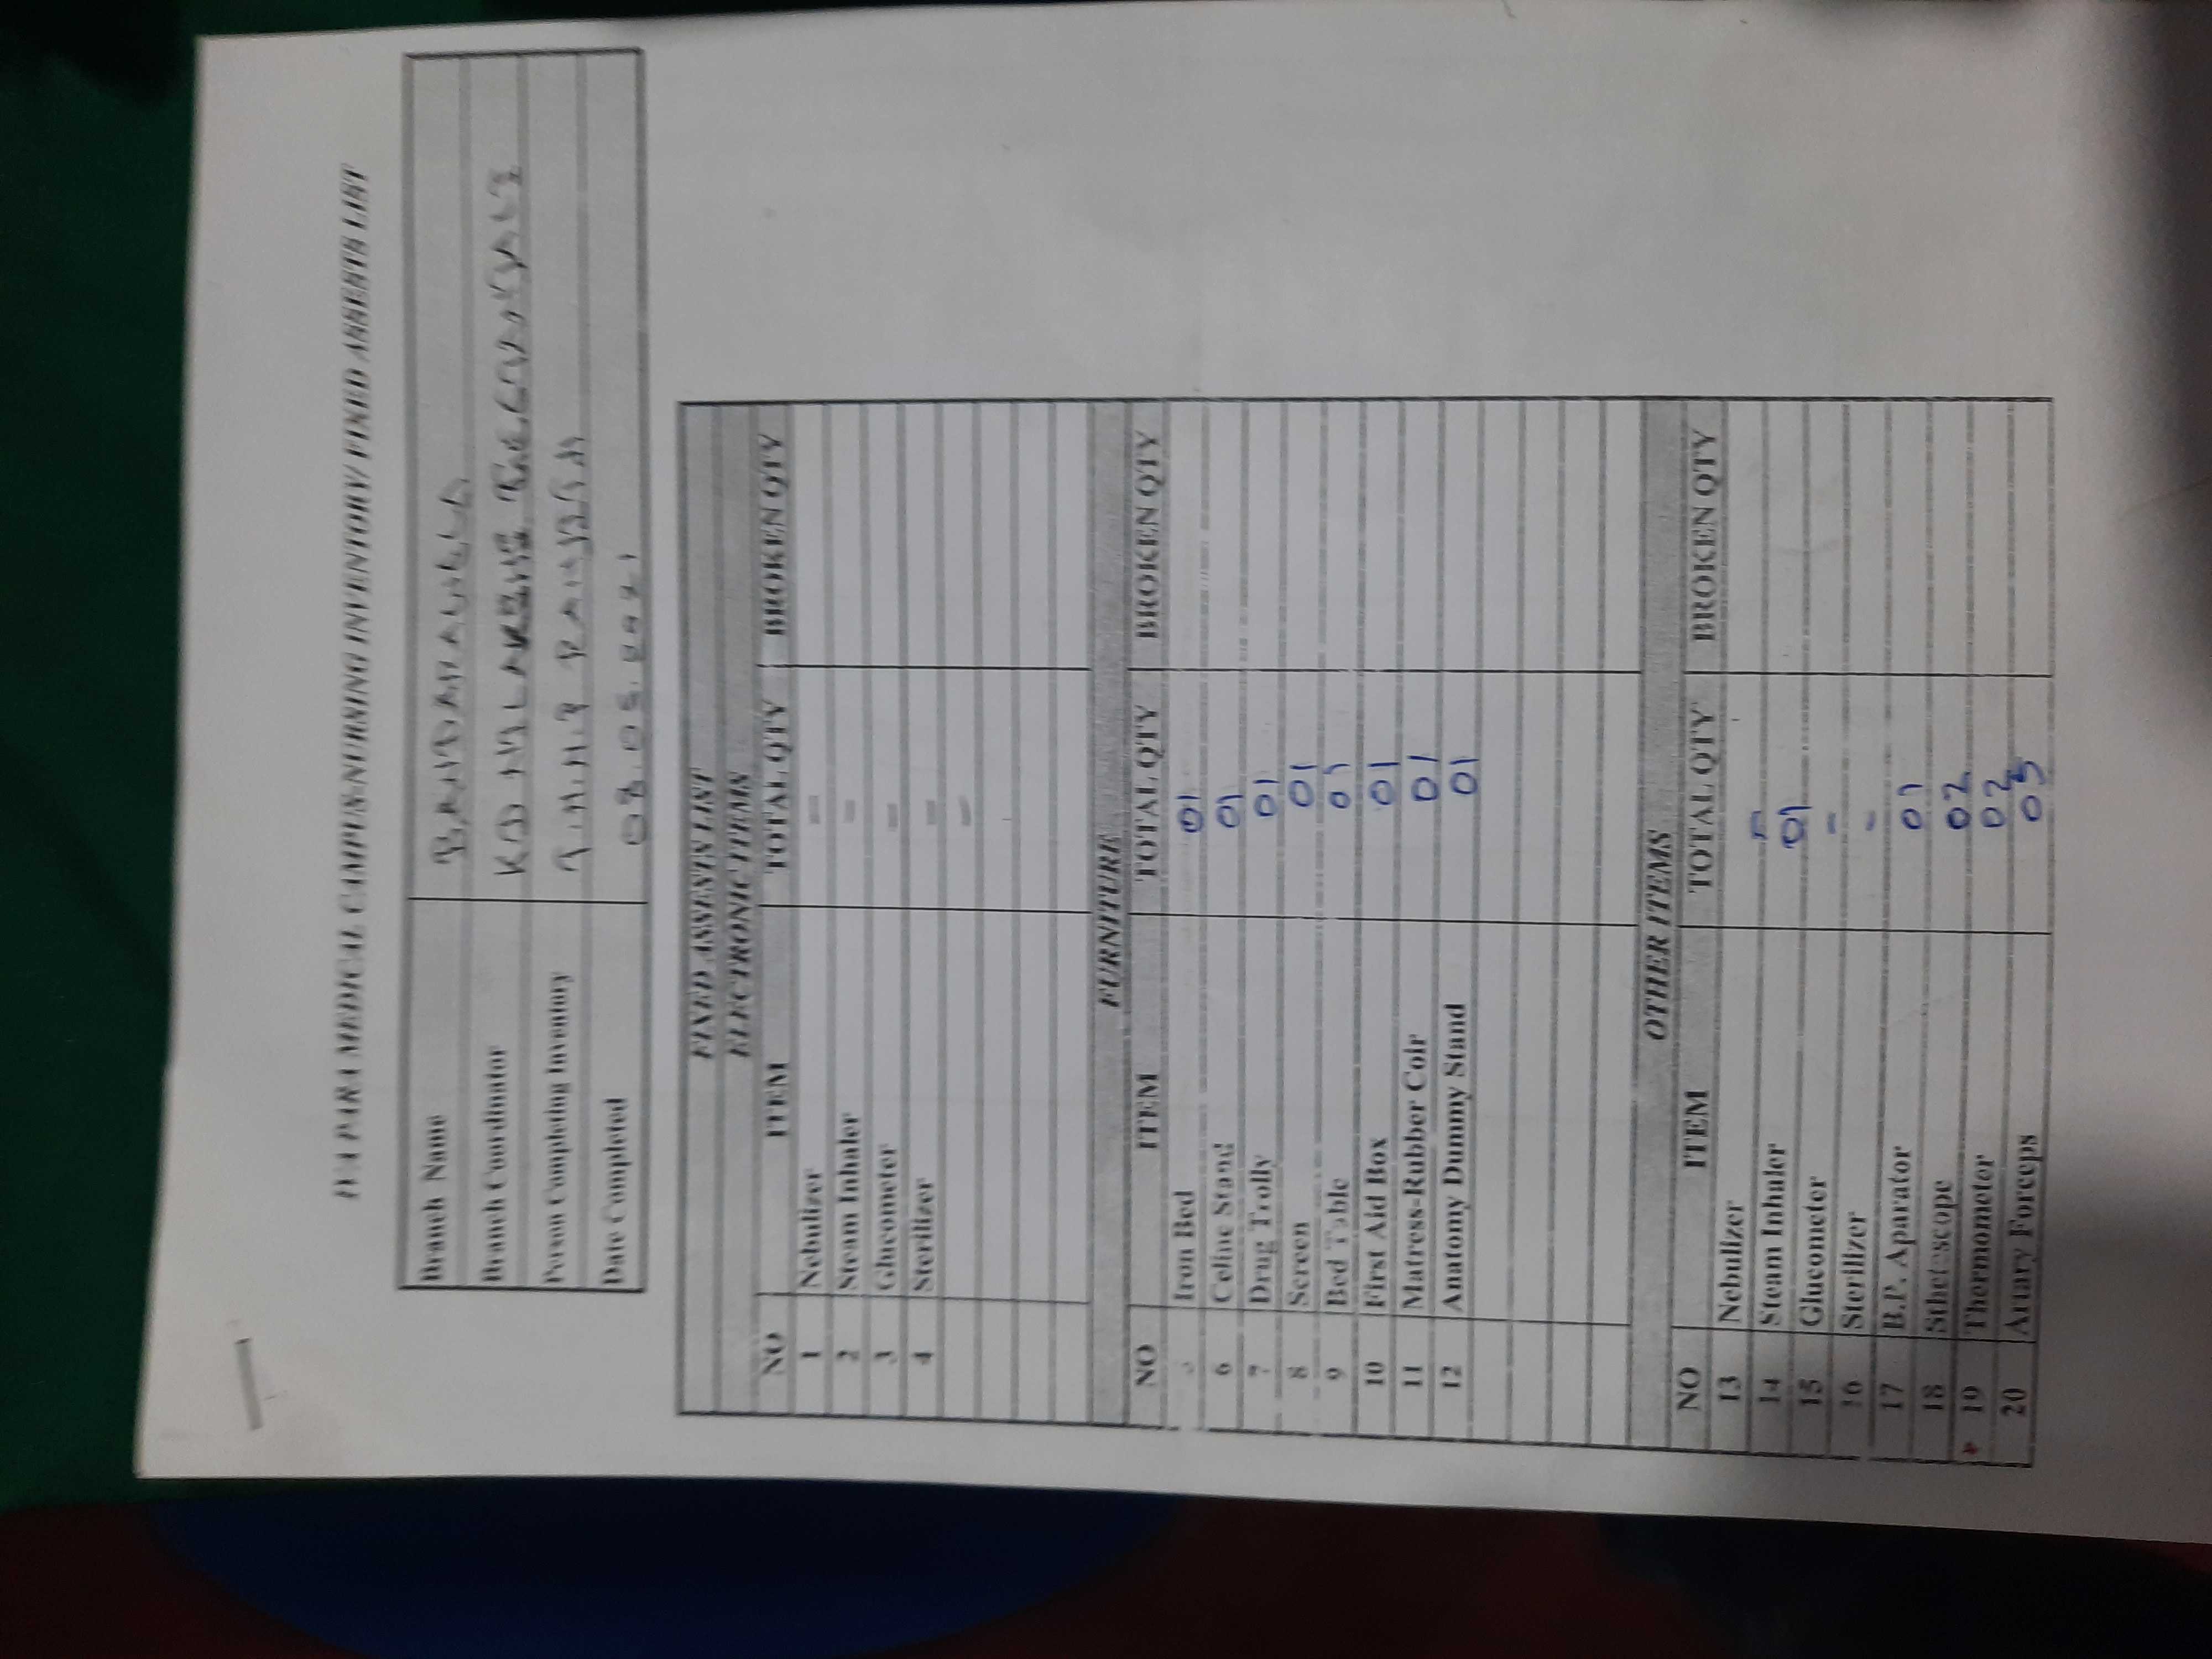 PARA MEDICAL CAMPUS-NURSING INVENTORY/ FIXED ASSESTS LIST
Branch Name BANDARAWELA
Branch Coordinator
Person Completing Inventory
Date Completed
FIXED ASSESTS LIST
ELECTRONIC ITEMS
NO ITEM TOTAL QTY BROKEN QTY
1 Nebulizer -
2 Steam Inhaler -
3 Glucometer -
4 Sterilizer -
-
FURNITURE
NO ITEM TOTAL QTY BROKEN QTY
Iron Bed 01
6 Celine Stand 01
7 Drug Trolly 01
8 Screen 01
9 Bed Table 01
10 First Aid Box 01
11 Matress-Rubber Coir 01
12 Anatomy Dummy Stand 01
OTHER ITEMS
NO ITEM TOTAL QTY BROKEN QTY
13 Nebulizer
14 Steam Inhaler 01
15 Glucometer -
16 Sterilizer -
17 B.P. Aparator 01
18 Sthetescope 02
19 Thermometer 02
20 Artary Forceps